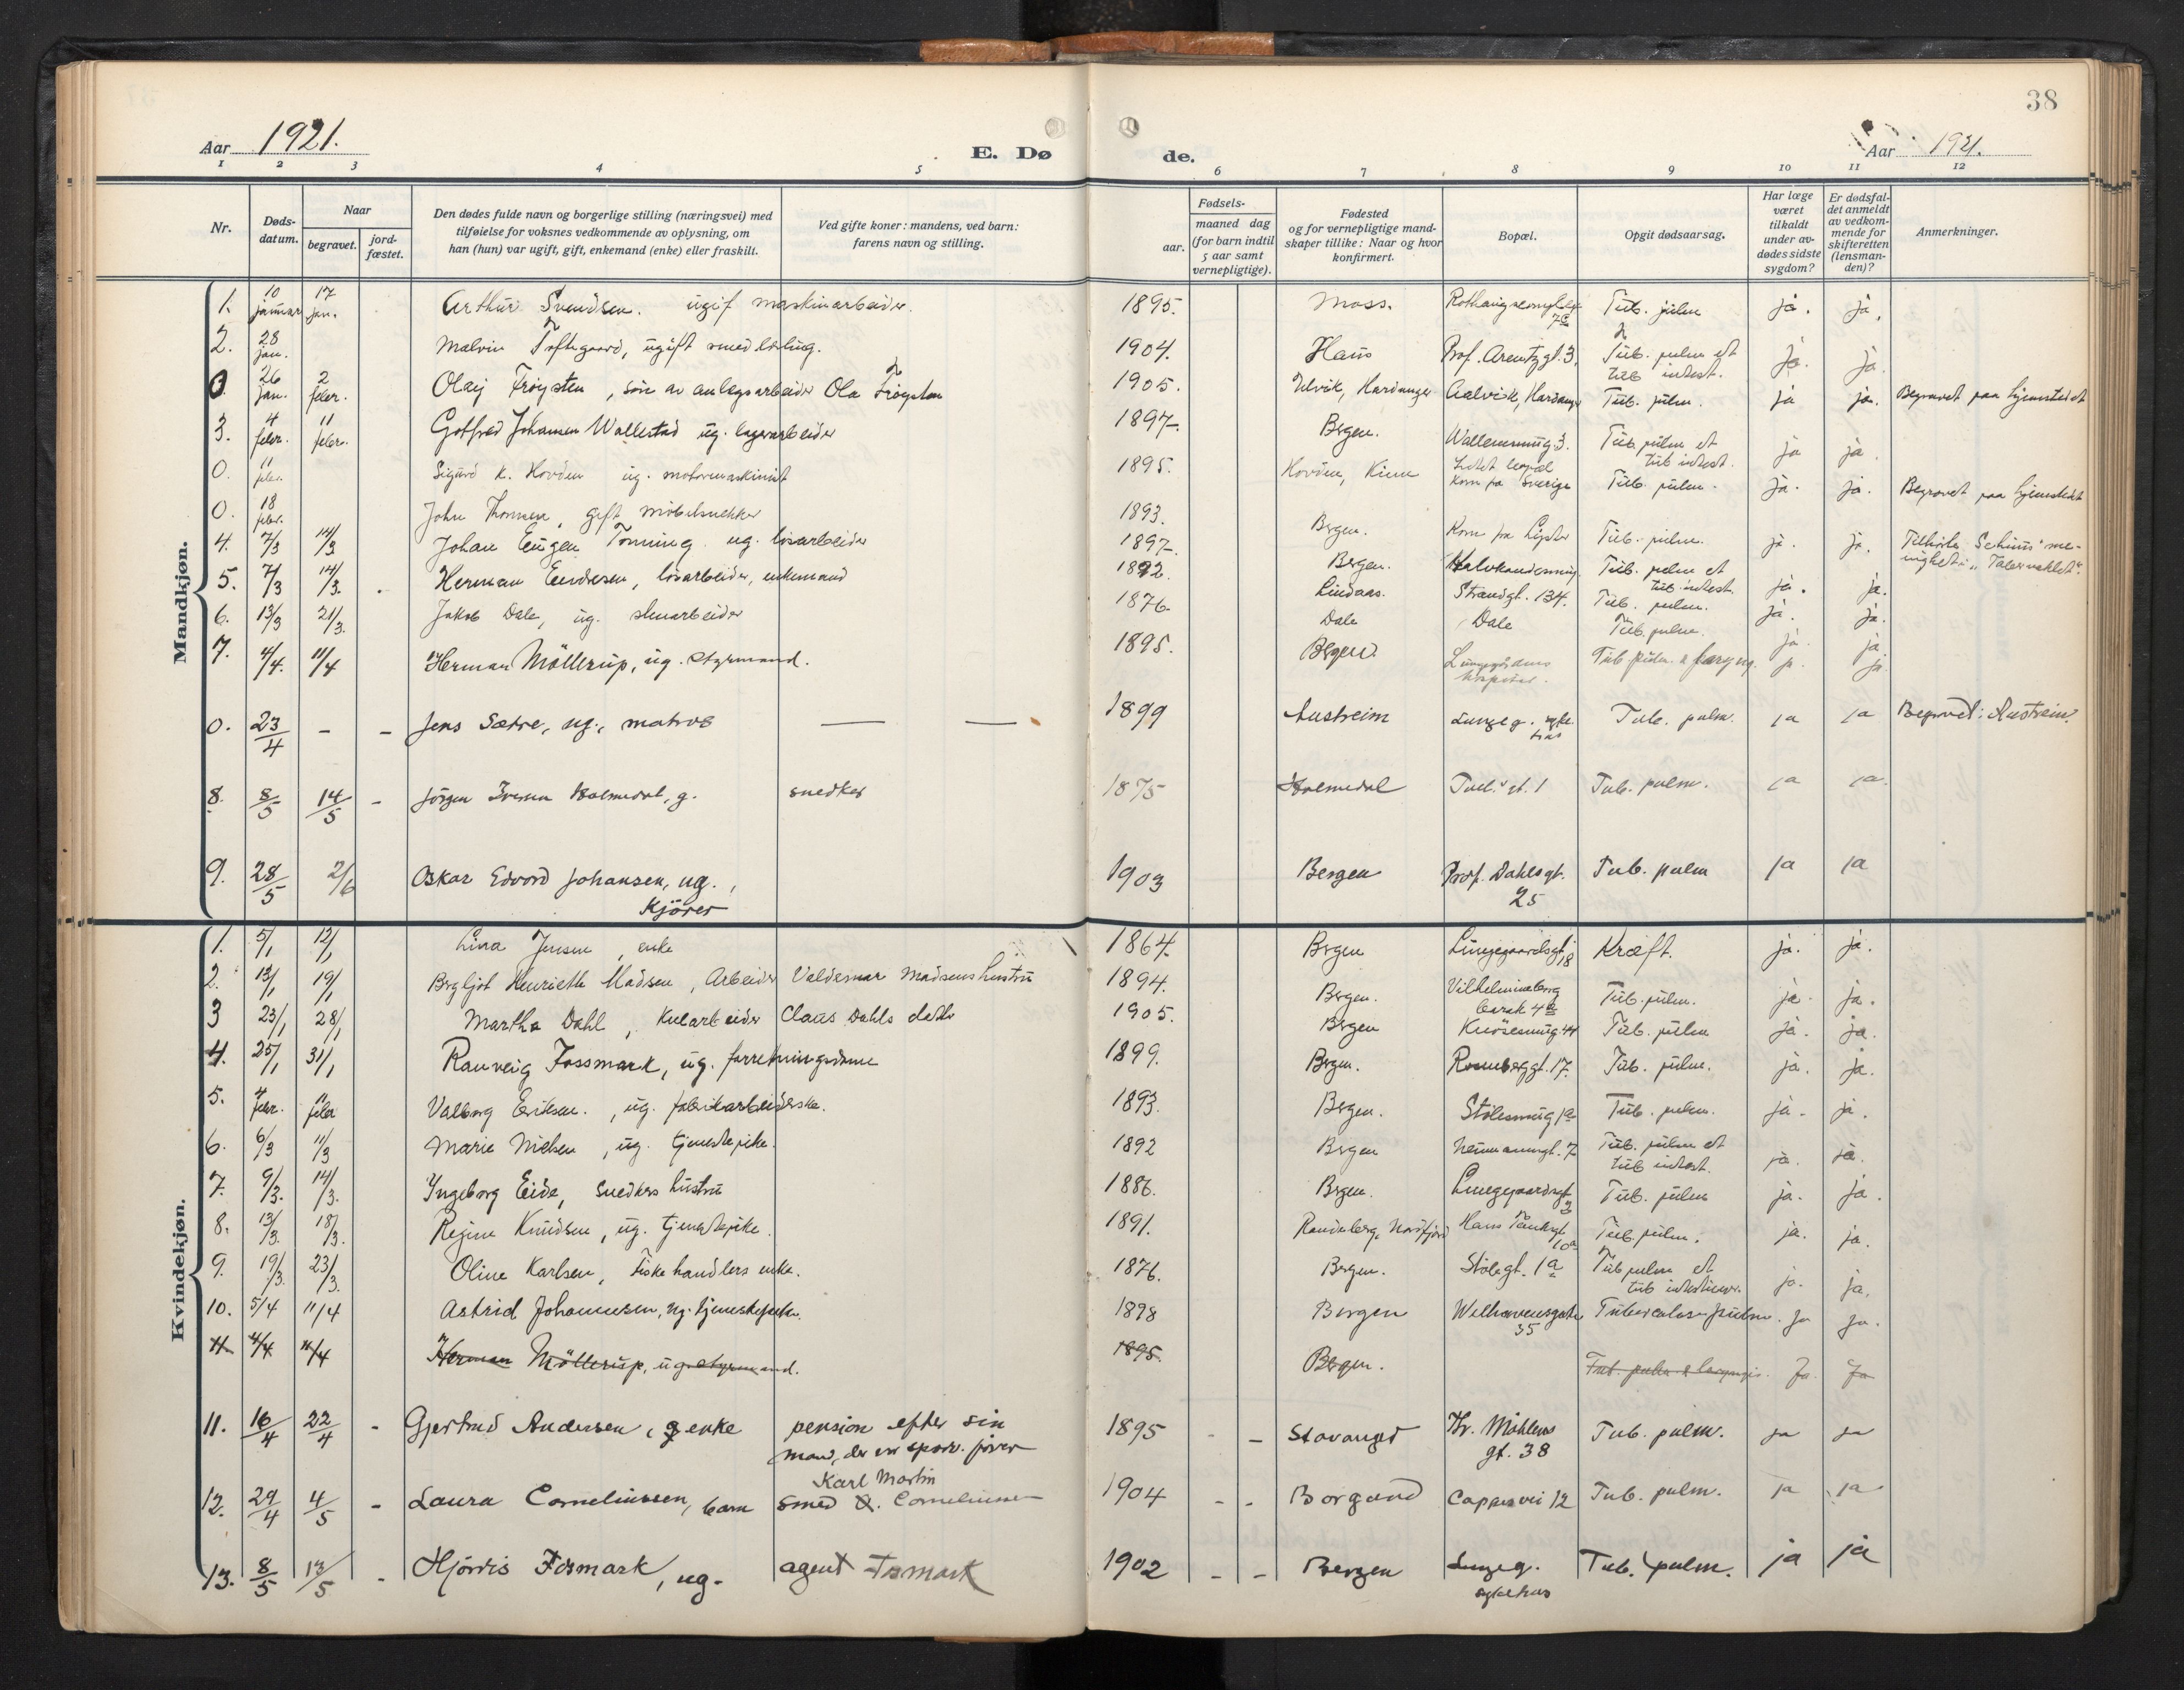 38
Aar 1921.
E. Dø
de.
Aar 1921.
1 2 3 4 5 6 7 8 9 10 11 12
Nr.
Døds-
datum.
Naar
begravet.
jord-
fæstet.
Den dødes fulde navn og borgerlige stilling (næringsvei) med
tilføielse for voksnes vedkommende av oplysning, om
han (hun) var ugift, gift, enkemand (enke) eller fraskilt.
Ved gifte koner: mandens, ved barn:
farens navn og stilling.
Fødsels-
aar.
maaned dag
(for barn indtil
5 aar samt
vernepligtige).
Fødested
og for vernepligtige mand-
skaper tillike: Naar og hvor
konfirmert.
Bopæl.
Opgit dødsaarsag.
Har læge
været
tilkaldt
under av-
dødes sidste
sygdom?
Er dødsfal-
det anmeldt
av vedkom-
mende for
skifteretten
(lensman-
den)?
Anmerkninger.
Mandkjøn.
1. 10 januar 17 jan. Arthur Svendsen. ugif maskinarbeider. 1895. Moss. 7c Tub. pulm ja. ja.
2. 28 jan. Malvin Toftegaard, ugift smedlærling. 1904. Haus Prof. Arentzgt. 3. Tub. pulm et
tub intest. ja. ja.
0. 26 jan. 2 febr. Olav Frøysten, søn av anlegsarbeider Ola Frøysten 1905. Ulvik, Hardanger Aalvik, Hardanger Tub. pulm. ja ja. Begravet paa hjemstedet
3. 4 febr. 11 febr. Gotfred Johansen Wallestad ug. lagerarbeider 1897. Bergen. 3. Tub. pulm et
tub intest. ja ja.
0. 11 febr. Sigurd K. Hovden ug. motormaskinist 1895. Hovden, Kinn
kom fra Sverige Tub. pulm. ja. ja. Begravet paa hjemstedet
0. 18 febr. John Thomsen, gift møbelsnekker 1893. Bergen. Kom fra Tub. pulm. ja. ja.
menighet: "Tabernaklet".
4. 7/3 14/3 Johan Eugen Tonning ug. løsarbeider 1897. Bergen. Tub. pulm et
tub. intest. ja. ja.
5. 7/3 14/3. Herman Endresen, løsarbeider, enkemand 1892. Lindaas. Strandgt. 134. Tub. pulm. ja. ja.
6. 13/3 21/3. Jakob Dale, ug. 1876. Dale Dale Tub. pulm. ja. ja.
7. 4/4. 11/4 Herman Möllerup, ug. styrmand. 1895. Bergen. Lungegårdens
hospital. Tub. pulm. & laryng. ja. ja.
0. 23/4 – – Jens Sætre, ug., matros — — 1899 Austreim Lungeg. syke-
hus Tub. pulm. ja ja Begravet i Austreim.
8. 8/5 14/5 – Jörgen Iversen Holmedal, g. snedker 1875 Holmedal Tub. pulm. ja ja.
9. 28/5 2/6 Oskar Edvard Johansen, ug.,
Kjörer 1903 Bergen Prof. Dahlsgt.
25 Tub. pulm ja ja
Kvindekjøn.
1. 5/1 12/1 Lina Jensen, enke 1864. Bergen Lungegaardsgt. 18 Kræft. ja. ja.
2. 13/1 19/1 Bergljot Henriette Madsen, Arbeider Valdemar Madsens hustru 1894. Bergen. Vilhelmineborg
barak 4a Tub. pulm. ja. ja.
3 23/1 28/1 Martha Dahl, Kularbeider Claus Dahls datter 1905. Bergen Knösesmug 44 Tub. pulm ja. ja.
4. 25/1 31/1 Ranveig Fossmark, ug. forretningsdame 1899. Bergen. Rosenberggt. 17. Tub. pulm. ja. ja.
5. 4 febr. 11 febr Valborg Eriksen., ug. fabrikarbeiderske. 1893. Bergen. Stölesmug 1a Tub. pulm. ja. ja.
6. 6/3 11/3 Marie Nielsen, ug. tjenestepike. 1892 Bergen Neumannsgt. 7 Tub. pulm et
tub intest. ja. ja.
7. 9/3. 14/3. Ingeborg Eide, Snedkers hustru 1886. Bergen. Lungegaardsgt
3 Tub. pulm ja. ja.
8. 13/3. 18/3. Regine Knudsen, ug. tjenestepike. 1891. Nordfjord Hans Tanksgt
10a Tub. pulm. ja. ja.
9. 19/3. 23/3. Oline Karlsen, Fiskehandlers enke. 1876. Bergen. Stölegt. 1a Tub pulm et
tub intestinor. ja. ja.
10. 5/4 11/4 Astrid Johannesen, ug. tjenestepike. 1898 Bergen Welhavensgate
35 Tuberculos pulm. ja ja.
11 4/4 11/4 Herman Möllerup, ug. styrmand. 1895. Bergen. Tub. pulm. & laryngis. Ja Ja
11. 16/4 22/4 – Gjertrud Andersen, g enke pension efter sin
mand, der var sporv. fører 1895 – Stavanger Thr. Möhlens
gt. 38 Tub. pulm. ja ja
12. 29/4 4/5 – Laura Corneliussen, barn Karl Martin
smed O. Corneliussen 1904 – – Borgund 12 Tub. pulm. ja ja
13. 8/5 13/5 – Hjördis Fosmark, ug. agent Fosmark 1902 – – Bergen Lungeg.
sykehus Tub. pulm. ja ja